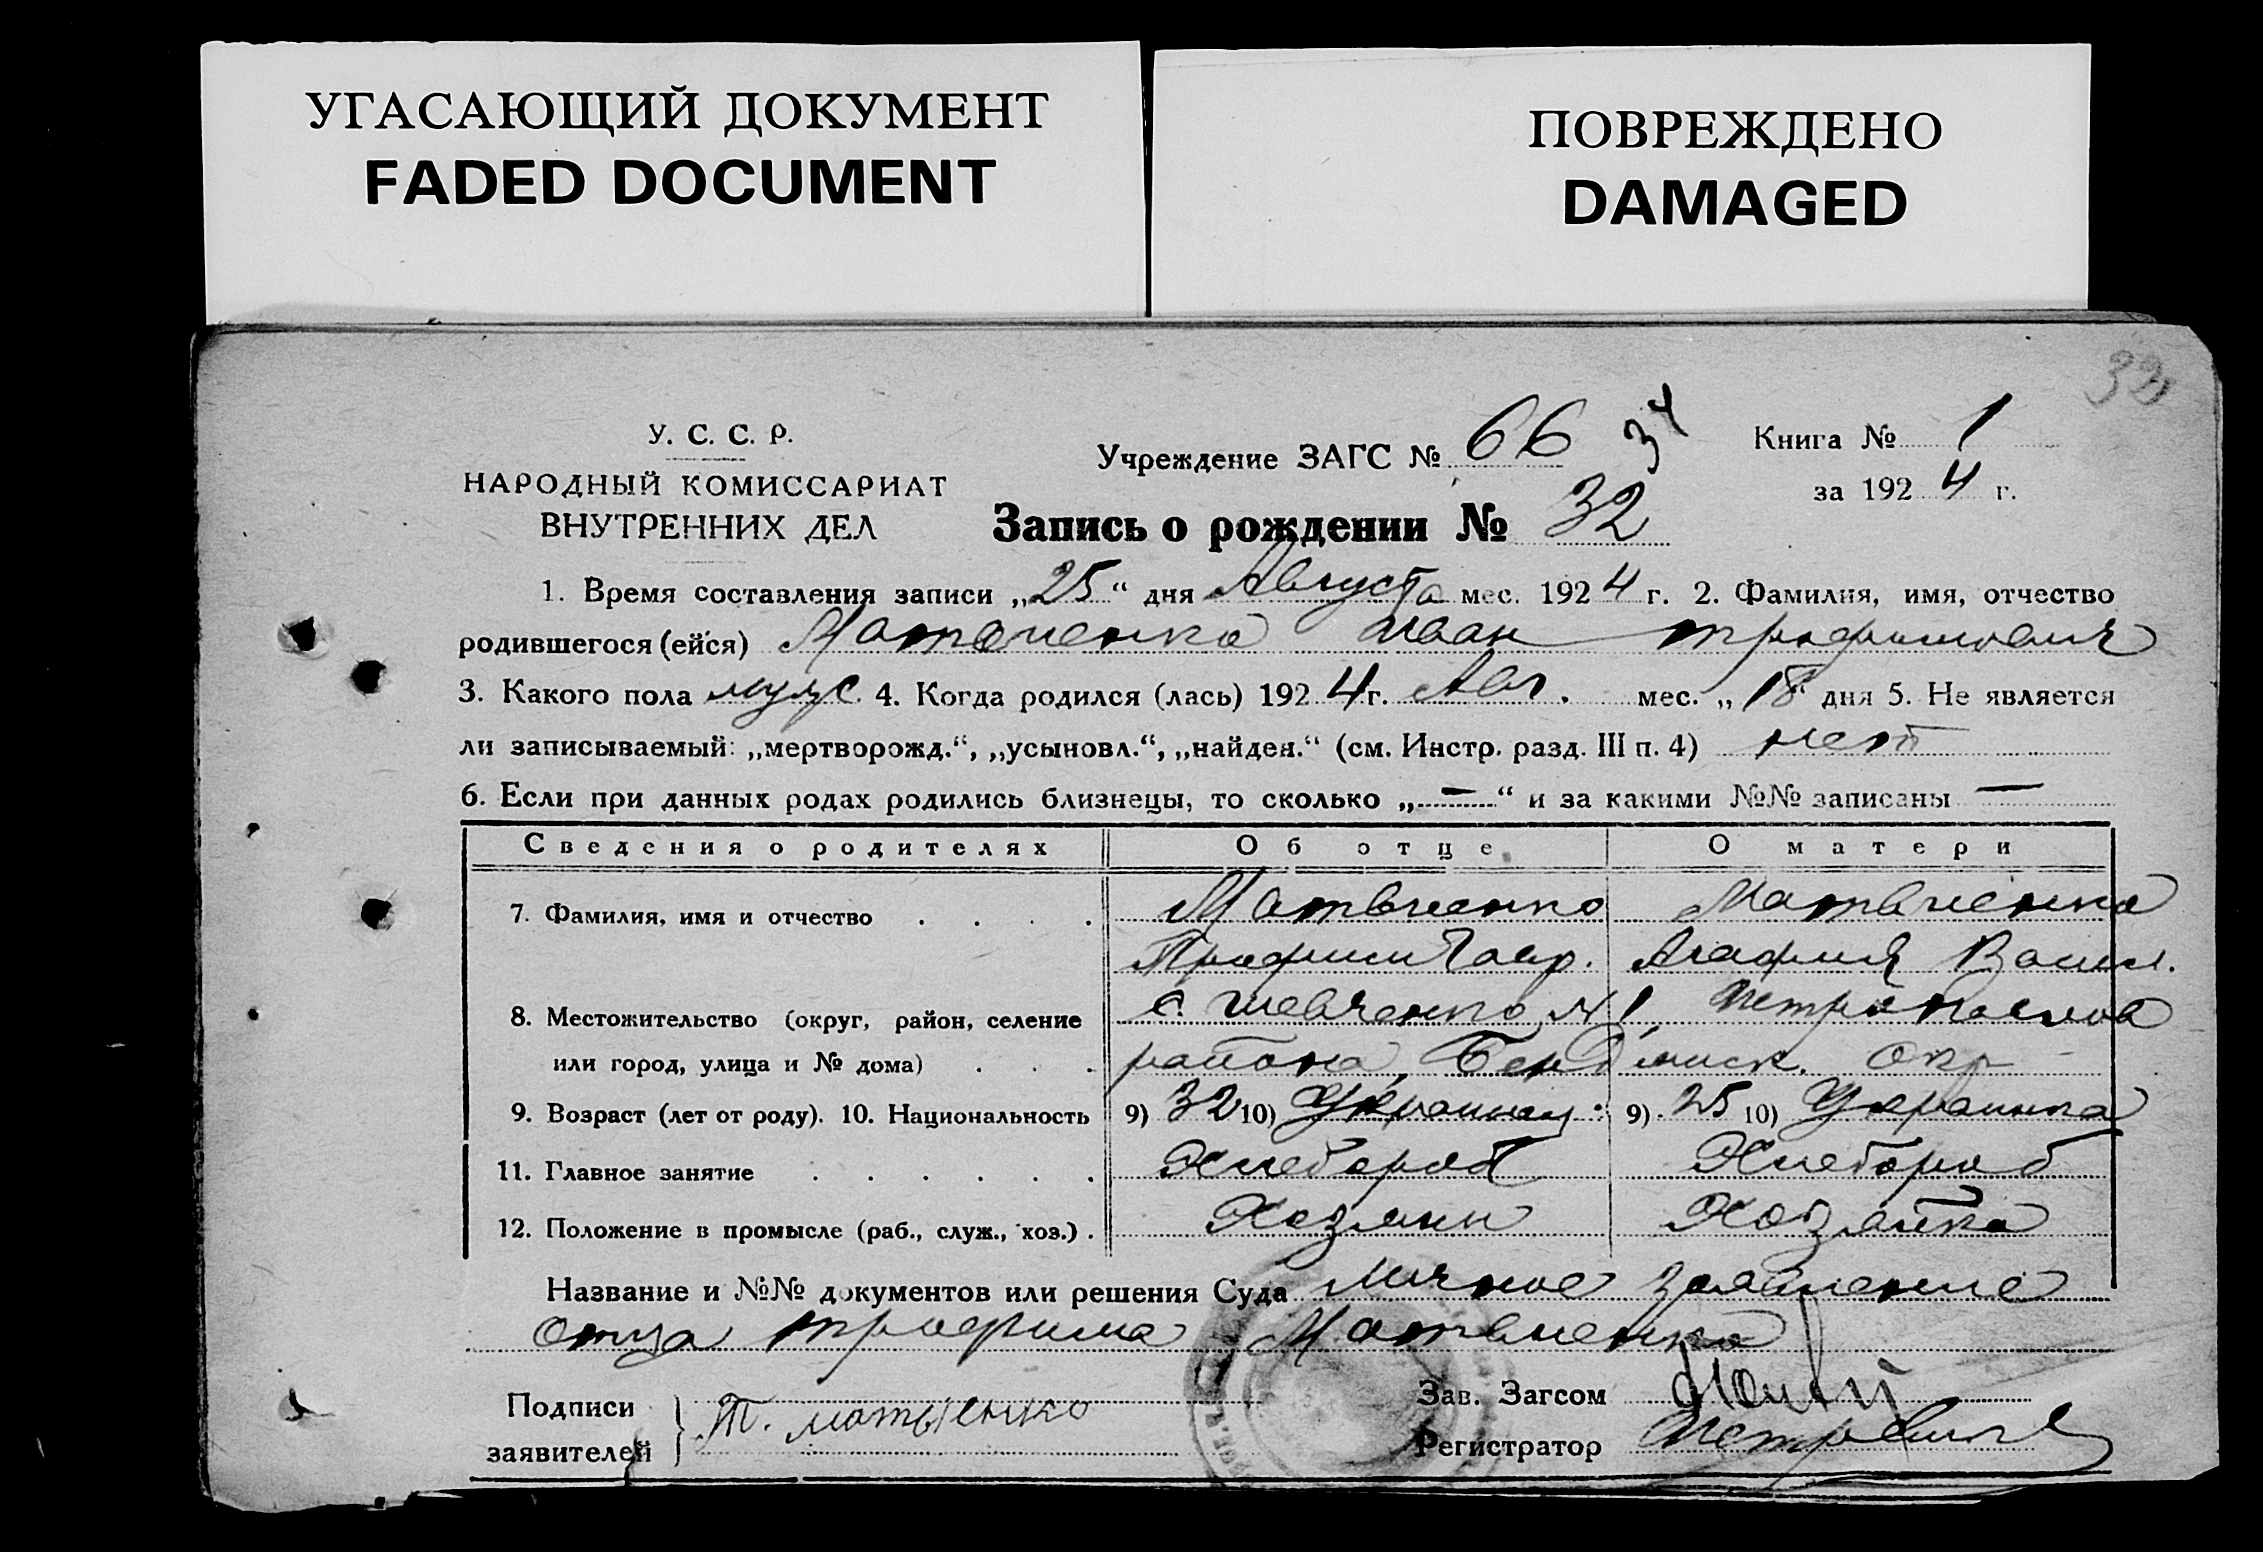 УГАСАЮЩИЙ ДОКУМЕНТ
FADED DOCUMENT
ПОВРЕЖДЕНО
DAMAGED
32
У. С. С. Р.
НАРОДНЫЙ КОМИССАРИАТ
ВНУТРЕННИХ ДЕЛ
Учреждение ЗАГС № 66 34
Книга № 1
за 1924 г.
Запись о рождении № 32
1. Время составления записи „25“ дня Августа мес. 1924 г. 2. Фамилия, имя, отчество
родившегося (ейся) Матвиенко Иван Трофимович
3. Какого пола муж. 4. Когда родился (лась) 1924 г. Авг. мес. „18“ дня 5. Не является
ли записываемый: „мертворожд.“, „усыновл.“, „найден.“ (см. Инстр. разд. III п. 4) нет
6. Если при данных родах родились близнецы, то сколько „—“ и за какими №№ записаны —
Сведения о родителях Об отце О матери
7. Фамилия, имя и отчество Матвиенко Матвиенко
Трофим Гавр. Агафия Васил.
8. Местожительство (округ, район, селение с. Шевченко № 1, Петропавлов
или город, улица и № дома) района, окр
9. Возраст (лет от роду). 10. Национальность 9) 32 10) Украинец 9) 25 10) Украинка
11. Главное занятие Хлебороб Хлебороб
12. Положение в промысле (раб., служ., хоз.) Хозяин Хозяйка
Название и №№ документов или решения Суда Личное заявление
отца Трофима Матвиенко
Подписи
заявителей } Т. Матвиенко
Зав. Загсом
Регистратор Петрович